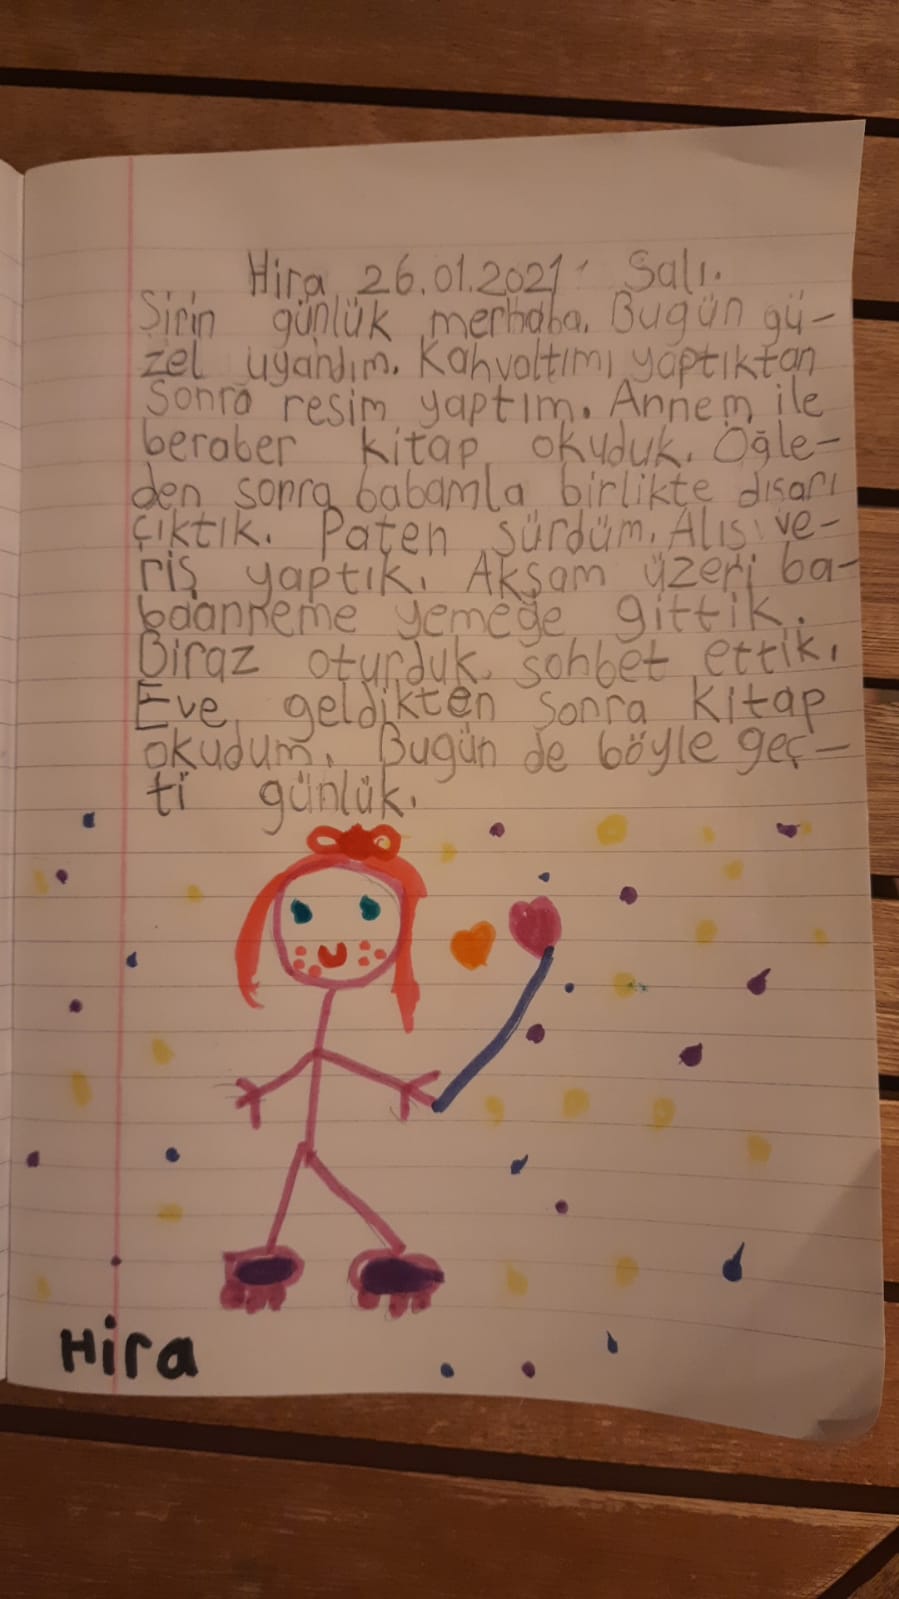 Hira 26.01.2021 Salı.
Şirin günlük merhaba. Bugün gü-
zel uyandım. Kahvaltımı yaptıktan
sonra resim yaptım. Annem ile
beraber kitap okuduk. Öğle-
den sonra babamla birlikte dışarı
çıktık. Paten sürdüm. Alış ve-
riş yaptık. Akşam üzeri ba-
baanneme yemeğe gittik.
Biraz oturduk sohbet ettik.
Eve geldikten sonra kitap
okudum. Bugün de böyle geç-
ti günlük.
Hira